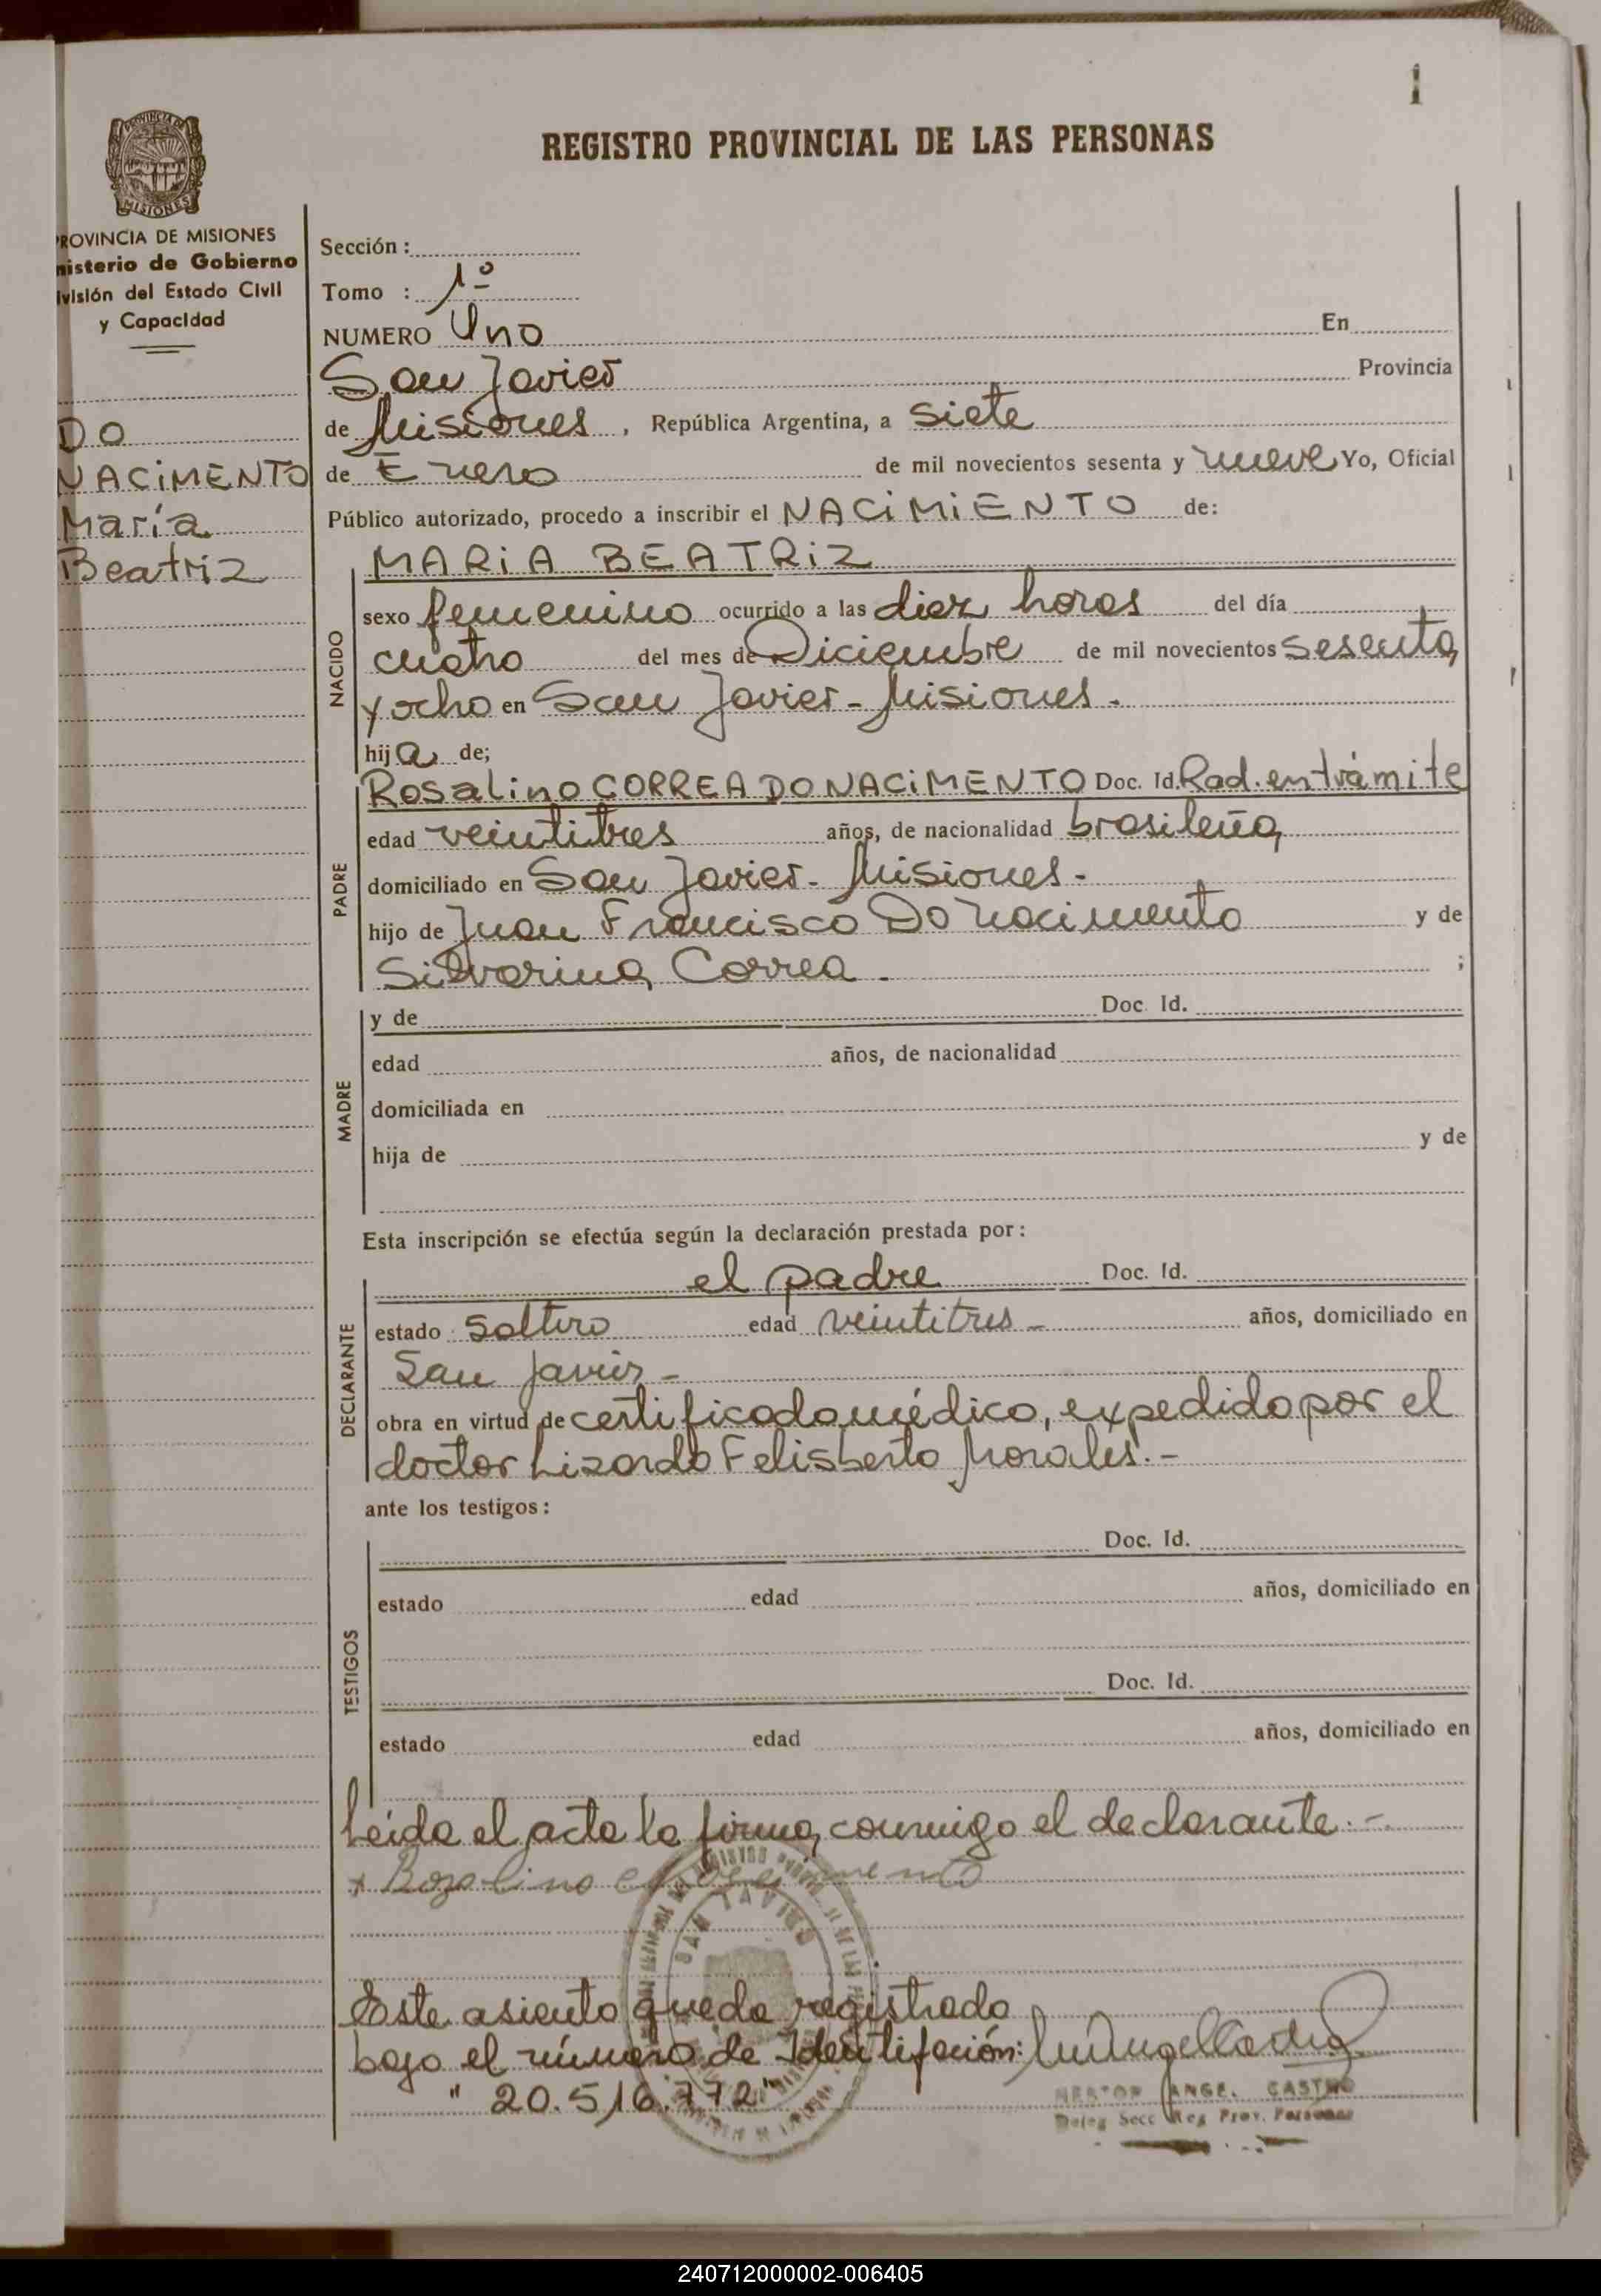 1
REGISTRO PROVINCIAL DE LAS PERSONAS
PROVINCIA DE
MISIONES
PROVINCIA DE MISIONES
nisterio de Gobierno
ivisión del Estado Civil
y Capacidad
DO
NACIMENTO
María
Beatriz
Sección :
Tomo : 1º
NUMERO Uno En
San Javier Provincia
de Misiones , República Argentina, a siete
de Enero de mil novecientos sesenta y nueve Yo, Oficial
Público autorizado, procedo a inscribir el NACIMIENTO de:
MARIA BEATRIZ
NACIDO
sexo femenino ocurrido a las diez horas del día
cuatro del mes de Diciembre de mil novecientos sesenta
y ocho en San Javier - Misiones -
hija de;
PADRE
Rosalino CORREA DO NACIMENTO Doc. Id. Rad. en trámite
edad veintitres años, de nacionalidad brasileña
domiciliado en San Javier - Misiones -
hijo de Juan Francisco Do Nacimento y de
Silvarina Correa - ;
MADRE
y de Doc. Id.
edad años, de nacionalidad
domiciliada en
hija de y de
Esta inscripción se efectúa según la declaración prestada por :
DECLARANTE
el padre Doc. Id.
estado soltero edad veintitres - años, domiciliado en
San Javier -
obra en virtud de certificado médico, expedido por el
doctor Lizardo Felisberto Morales. -
ante los testigos :
TESTIGOS
Doc. Id.
estado edad años, domiciliado en
Doc. Id.
estado edad años, domiciliado en
Leída el acta la firma conmigo el declarante. -
x Rozalino
SAN JAVIER
Este asiento queda registrado
bajo el número de Identifación:
" 20.516.772"
NESTOR ANGEL CASTRO
Deleg Secc Reg Prov. Personas
240712000002-006405